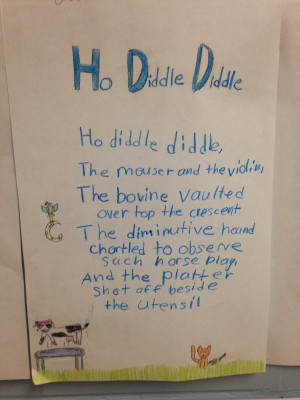 Ho Diddle Diddle
Ho diddle diddle,
The mouser and the violin,
The bovine vaulted
over top the crescent
The diminutive hound
chortled to observe
such horse play,
And the platter
shot off beside
the utensil